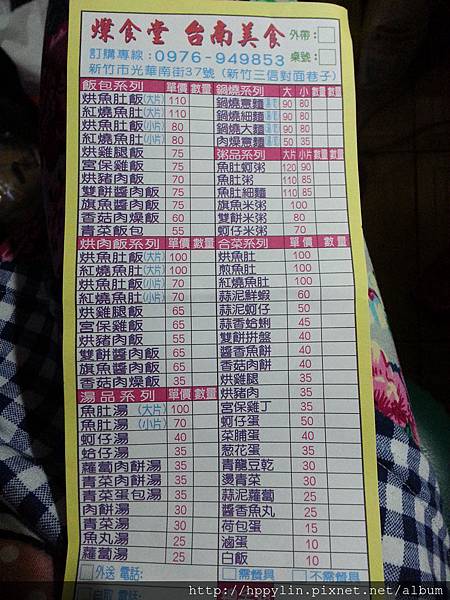 燦食堂 台南美食 外帶：
訂購專線：0976-949853 桌號：
新竹市光華南街37號（新竹三信對面巷子）
飯包系列 單價 數量
烘魚肚飯(大片) 110
紅燒魚肚(大片) 110
烘魚肚飯(小片) 80
紅燒魚肚(小片) 80
烘雞腿飯 75
宮保雞飯 75
烘豬肉飯 70
雙餅醬肉飯 75
旗魚醬肉飯 75
香菇肉燥飯 60
青菜飯包 55
烘肉飯系列 單價 數量
烘魚肚飯(大片) 100
紅燒魚肚(大片) 100
烘魚肚飯(小片) 70
紅燒魚肚(小片) 70
烘雞腿飯 65
宮保雞飯 65
烘豬肉飯 55
雙餅醬肉飯 65
旗魚醬肉飯 65
香菇肉燥飯 35
湯品系列 單價 數量
魚肚湯(大片) 100
魚肚湯(小片) 70
蚵仔湯 40
蛤仔湯 35
蘿蔔肉餅湯 35
青菜肉餅湯 35
青菜蛋包湯 35
肉餅湯 30
青菜湯 30
魚丸湯 25
蘿蔔湯 25
鍋燒系列 大 小 數量 數量
鍋燒意麵 90 80
鍋燒細麵 90 80
鍋燒大麵 90 80
肉燥意麵 50 35
粥品系列 大片 小片 數量 數量
魚肚蚵粥 120 90
魚肚粥 110 85
魚肚細麵 110 85
旗魚米粥 100
雙餅米粥 80
蚵仔米粥 70
合菜系列 單價 數量
烘魚肚 100
煎魚肚 100
紅燒魚肚 100
蒜泥鮮蝦 60
蒜泥蚵仔 50
蒜香蛤蜊 45
雙餅拼盤 40
醬香魚餅 40
香菇肉餅 40
烘雞腿 35
烘豬肉 35
宮保雞丁 35
蚵仔蛋 50
菜脯蛋 40
葱花蛋 35
青龍豆乾 30
燙青菜 30
蒜泥蘿蔔 25
醬香魚丸 25
荷包蛋 15
滷蛋 10
白飯 10
外送 電話： 需餐具 不需餐具
自取 電話：
http://hppylin.pixnet.net/album